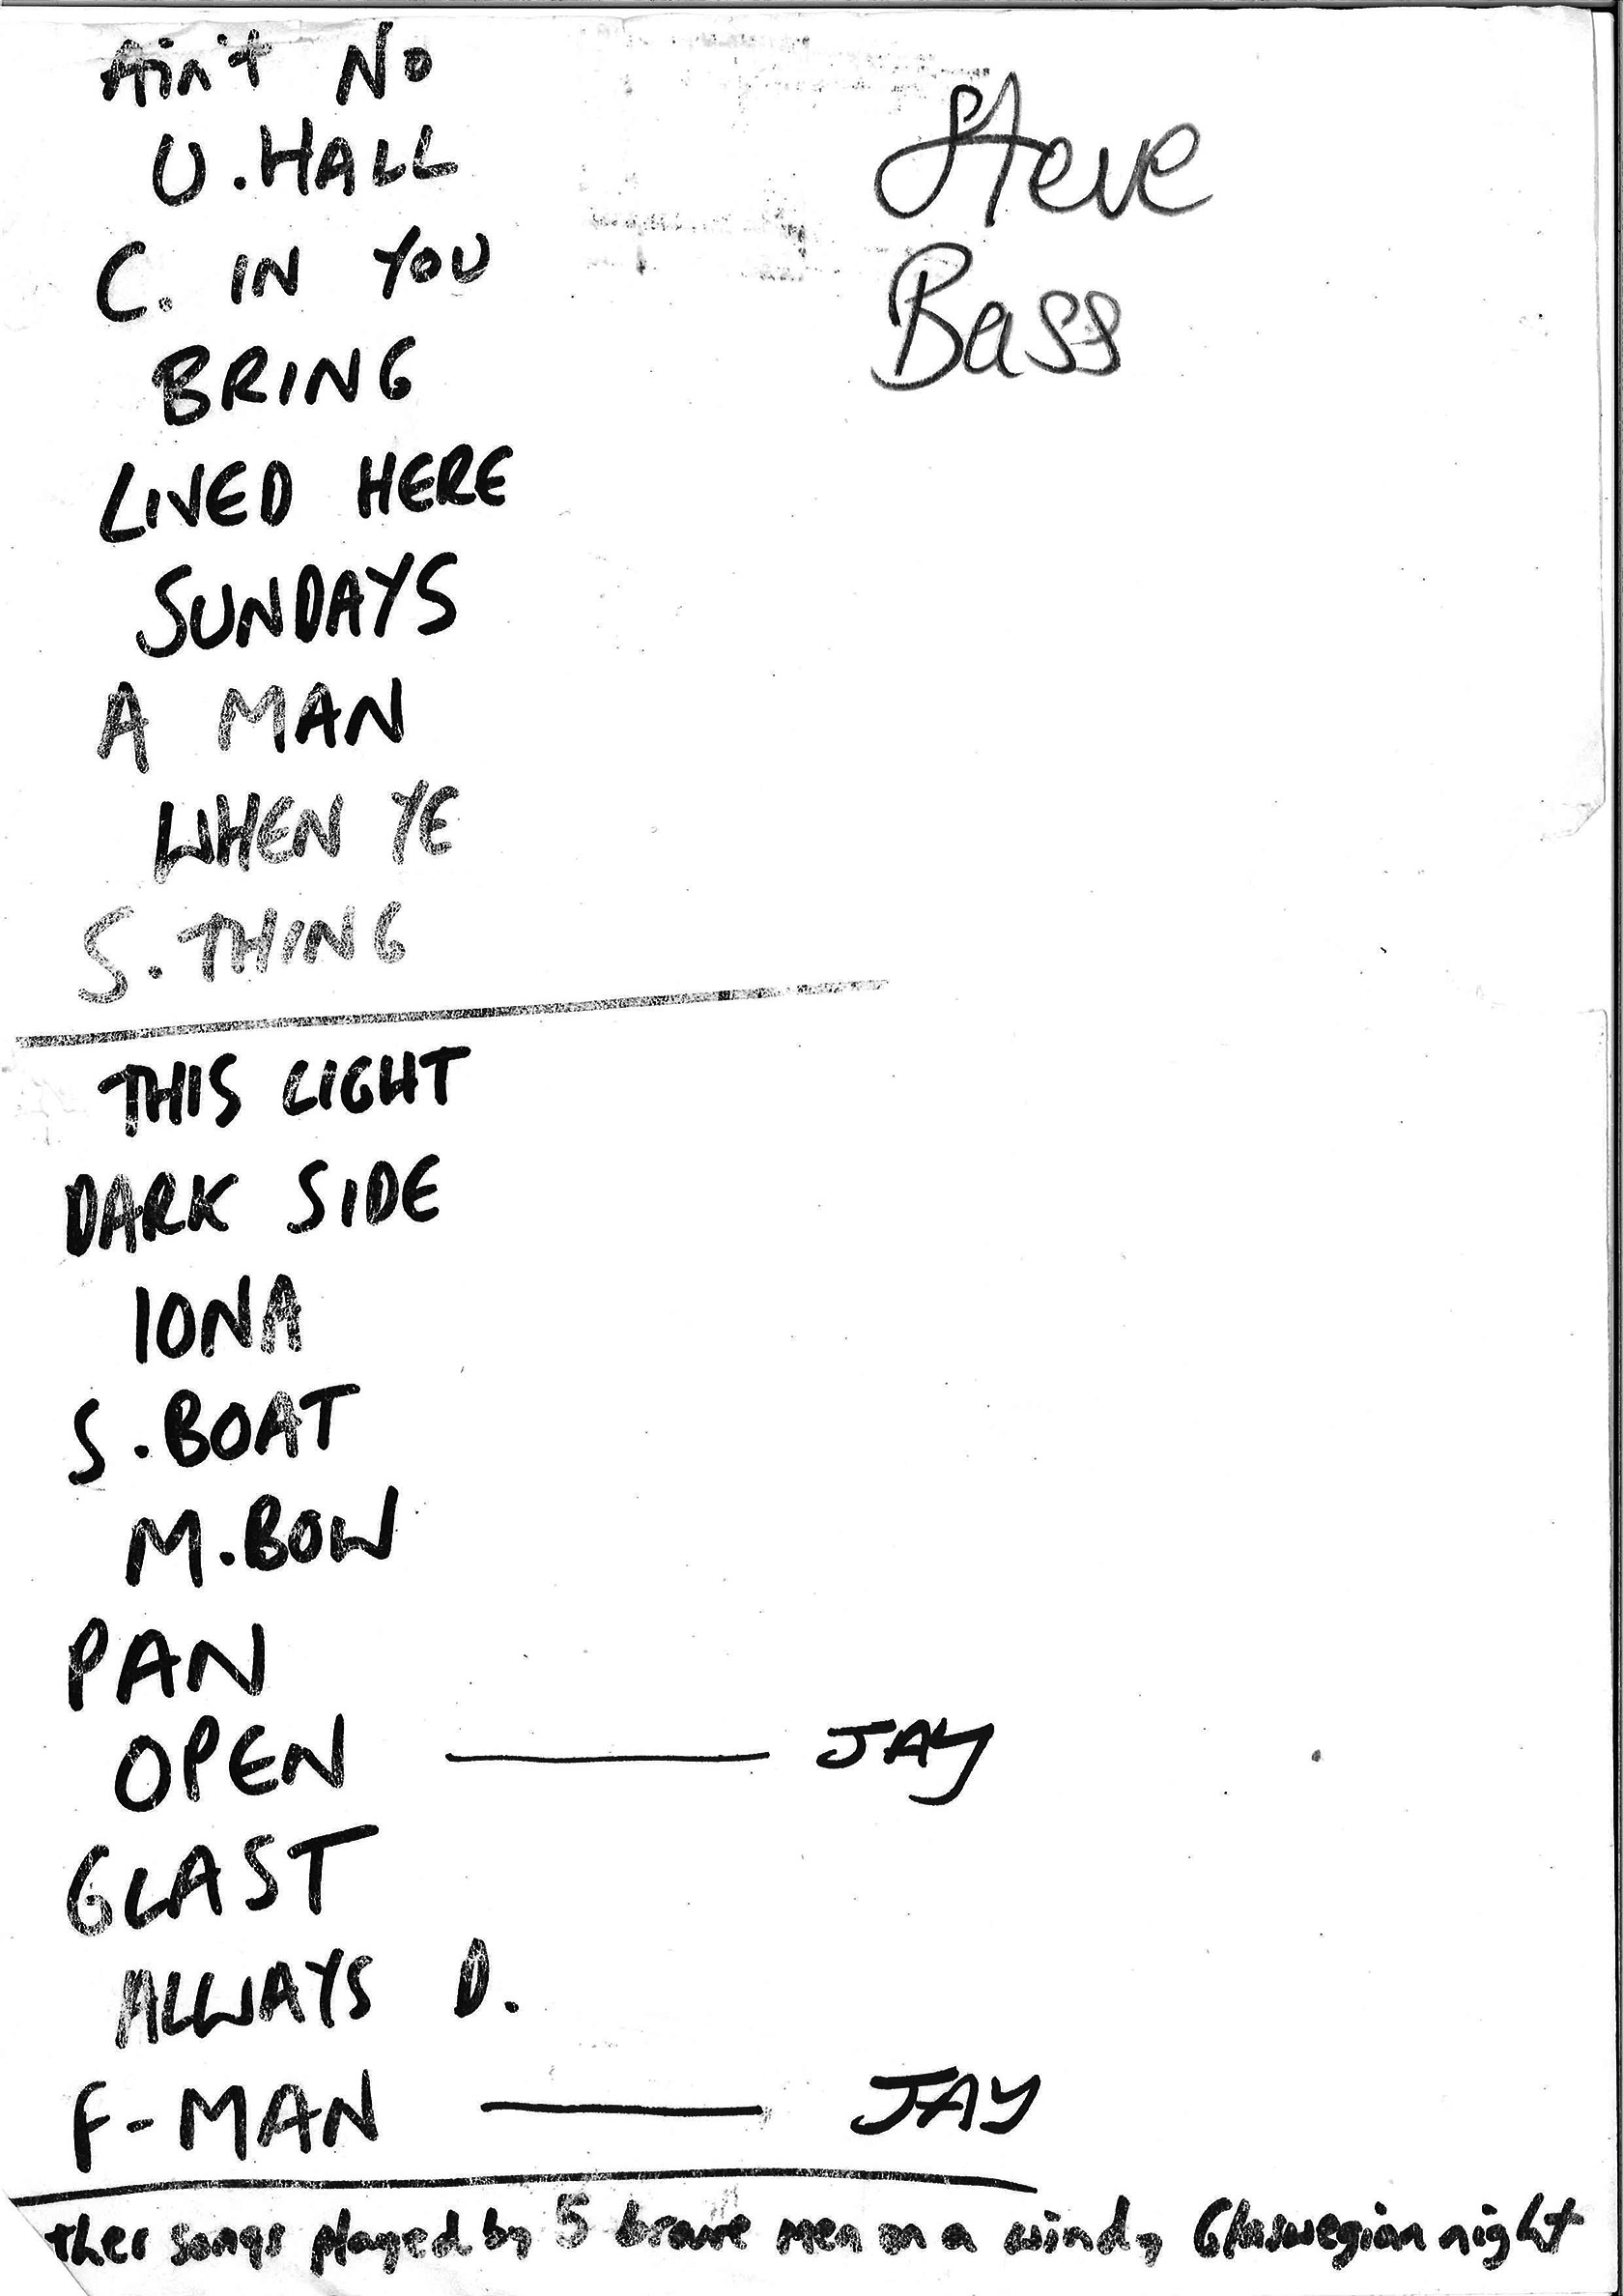 Ain't No
U. HALL
C. IN YOU
BRING
LIVED HERE
SUNDAYS
A MAN
WHEN YE
S. THING
THIS LIGHT
DARK SIDE
IONA
S. BOAT
M. BOW
PAN
OPEN — JAY
GLAST
ALWAYS D.
F-MAN — JAY
ther songs played by 5 brave men on a windy Glaswegian night
Steve
Bass